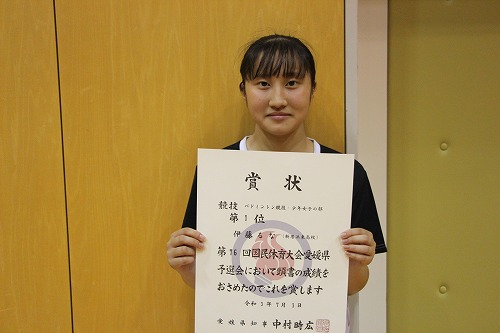 賞状
競技 バドミントン競技・少年女子の部
第1位
伊藤るな
第76回国民体育大会愛媛県
予選会において頭書の成績を
おさめたのでこれを賞します
令和3年7月1日
愛媛県知事 中村時広